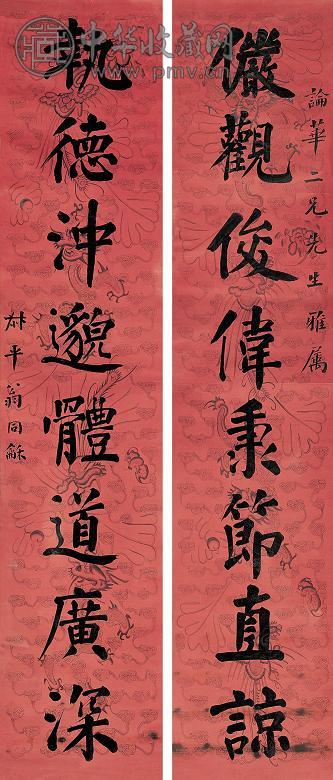 論華二兄先生雅属
儼觀俊偉秉節直諒
執德沖邈體道廣深
叔平翁同龢
中华收藏网
www.pmv.cn